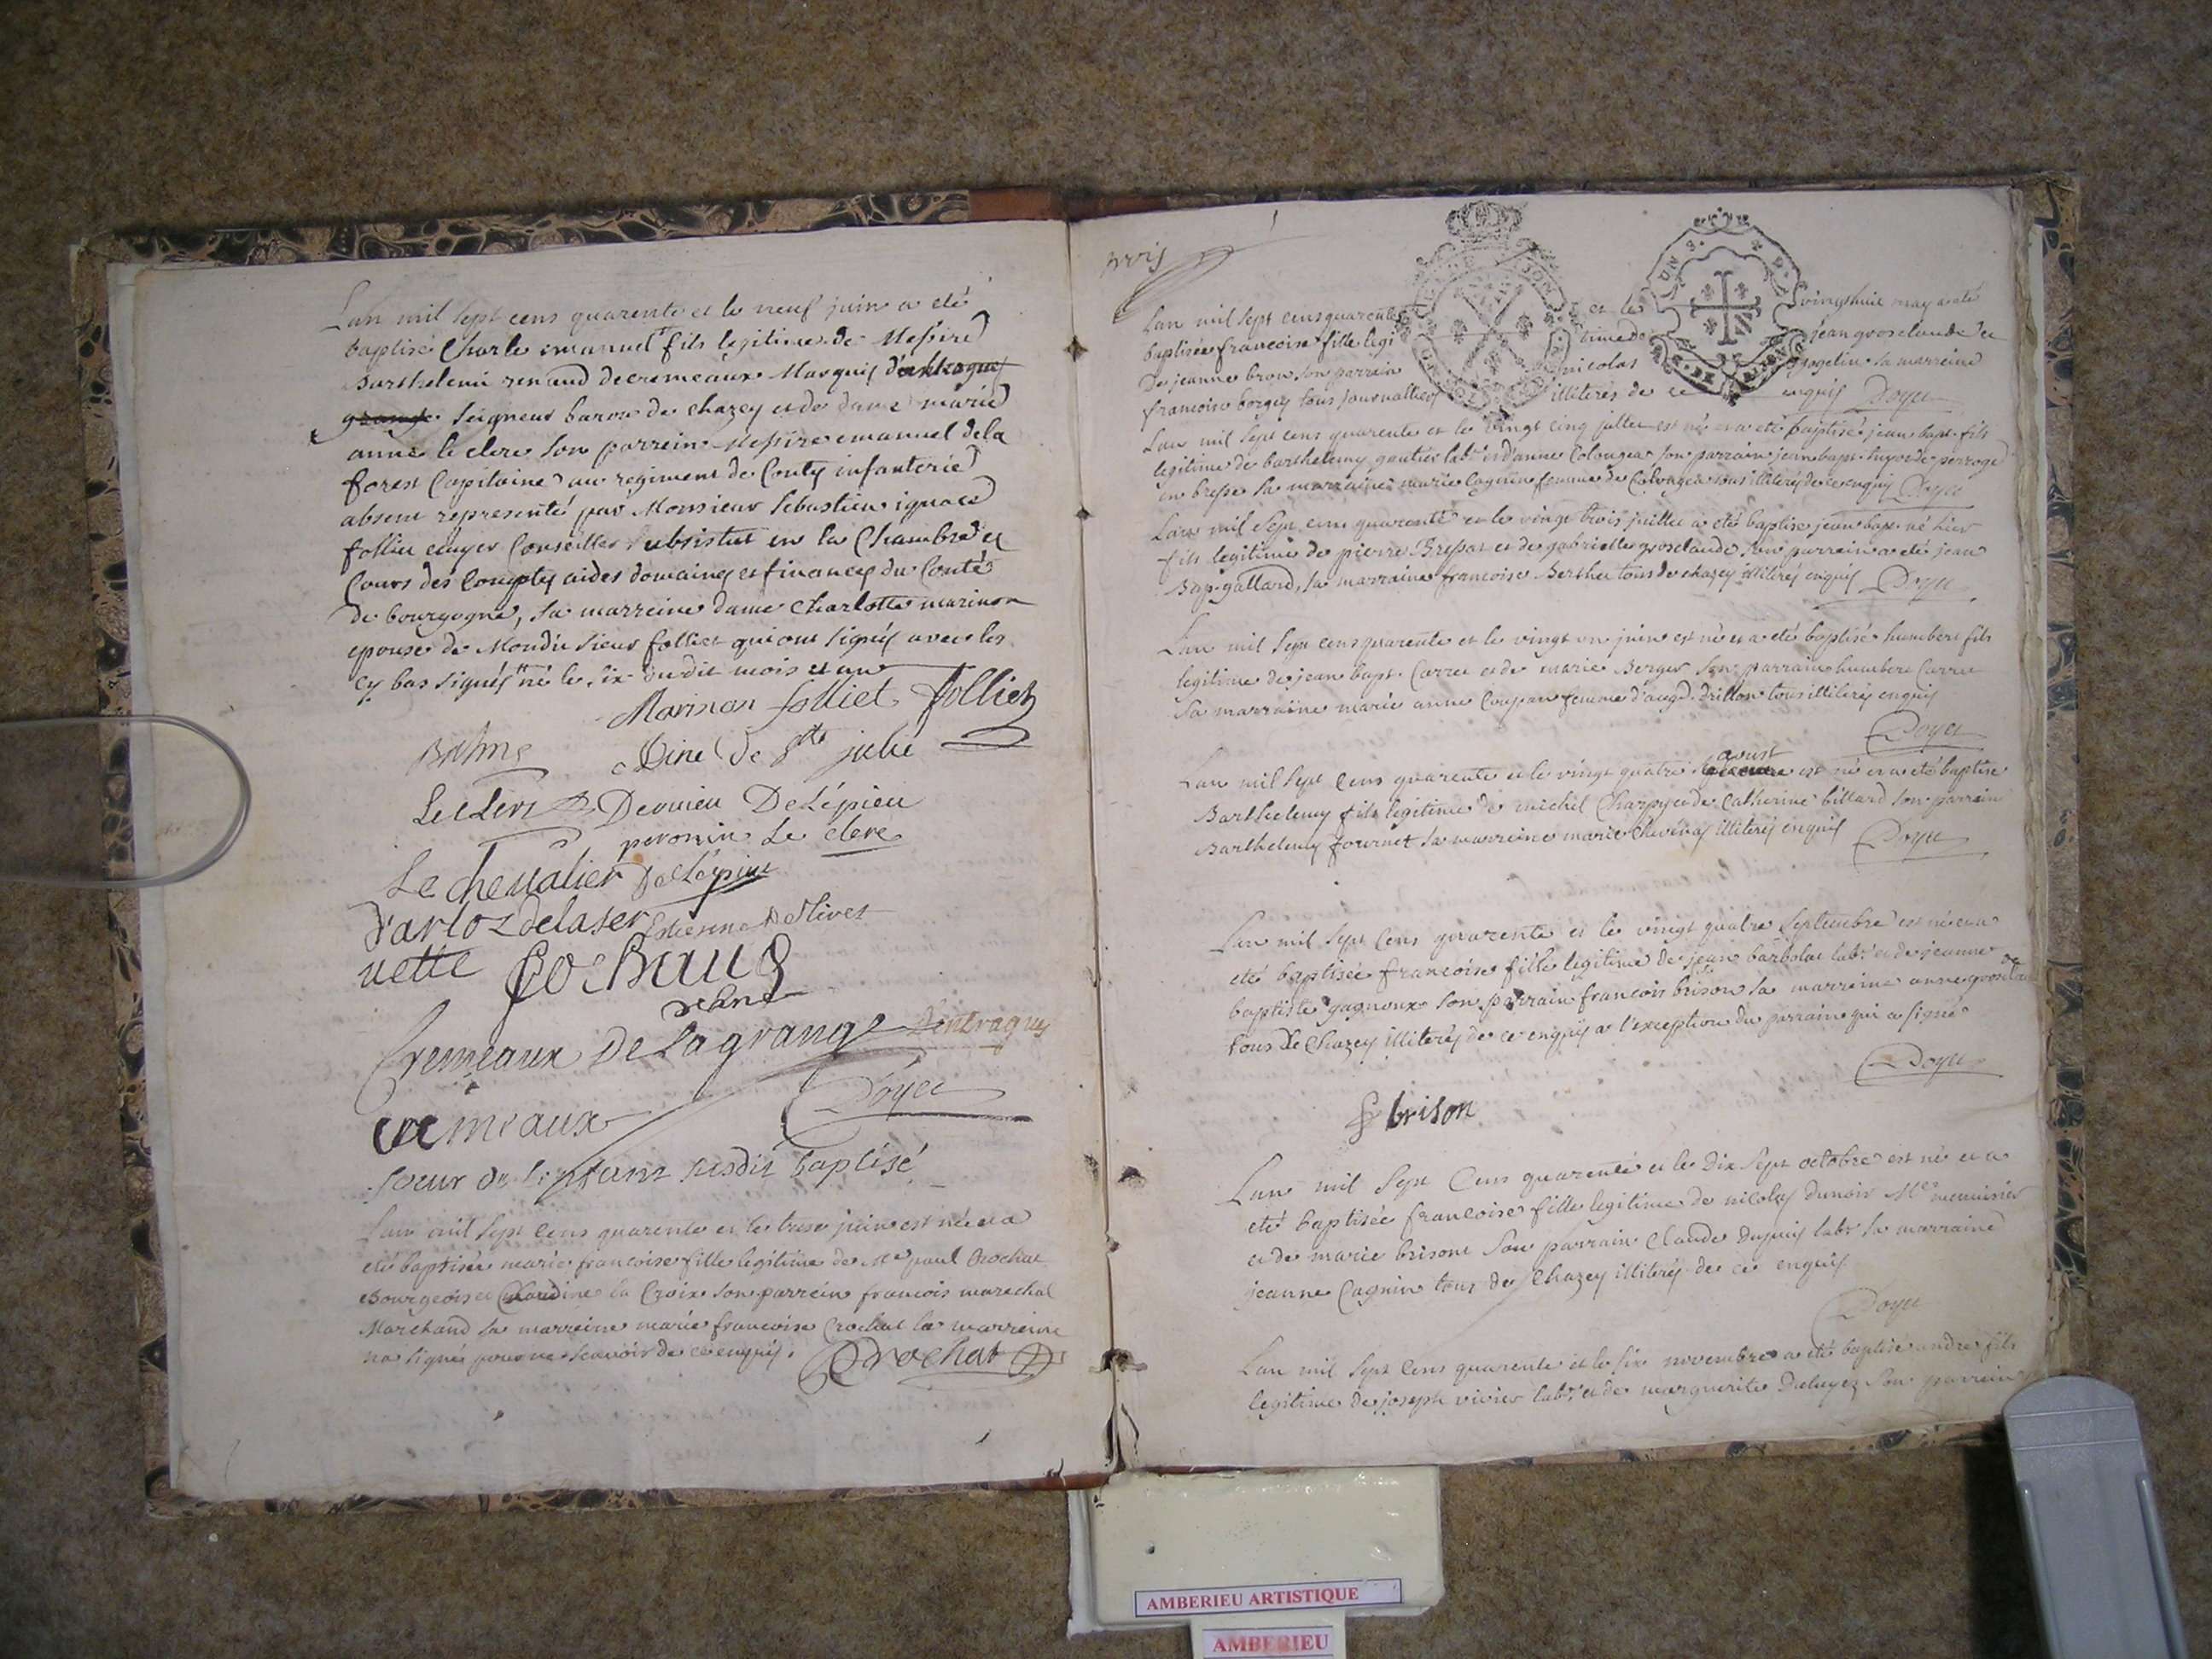 Lan mil sept cens quarente et le neuf juin a eté
baptisé Charle emanuel fils legitime de Messire
Barthelemi renaud de cremeaux Marquis d'entragues
grange Seigneur baron de chazey et de dame marie
anne le clerc son parrein Messire emanuel dela
forest Capitaine au regiment de Conty infanterie
absent representé par Monsieur Sebastien ignace
folliet ecuyer Conseiller substitut en la Chambre et
Cours des Comptes aides domaines et finances du Conté
de bourgogne, sa marreine dame Charlotte marinon
epouse de Mondit sieur folliet qui ont signés avec les
cy bas signés né le six dudit mois et an
Marinon folliet folliet
Dine de Ste julie
Leclerc Demieu Delépieu
peronin Le clerc
Le chevalier Delépine
Darloz delaser
uette
Cremeaux De Lagrange Dentragues
Doyet
cremeaux
soeur de l'enfant susdit baptisé
Lan mil sept cens quarente et le trese juin est née et a
eté baptisée marie francoise fille legitime de Me paul Crochat
Bourgeois et Claudine la Croix son parrein francois marechal
Marchand sa marreine marie francoise Crochat la marreine
na signés pour ne scavoir de ce enquis. Crochat
Lan mil sept cens quarente et le vingthuit may a eté
baptisée francoise fille legitime de jean groselaude et
De jeanne bron son parrein nicolas gogelin sa marreine
francoise borgey tous journalliers illiterés de ce enquis Doyet
Lan mil sept cens quarente et le vingt cinq jullet est né et a eté baptisé jean bapt. fils
legitime de barthelemy gautier labr et danne Colongea son parrain jean bapt. de perroge
en bresse sa marraine marie Cagnin femme de Colongea tous illiterés de ce enquis Doyet
Lan mil sept cens quarente et le vingt trois juillet a eté baptise jean bap. né hier
fils legitime de pierre Bressat et de gabrielle groselaude son parrein a eté jean
Bap. gallard, sa marraine francoise Berthet tous de chazey illiterés enquis Doyet
Lan mil sept cens quarente et le vingt un juin est né et a eté baptisé humbert fils
legitime de jean bapt. Carret et de marie Berger son parrain humbert Carret
sa marraine marie anne Coupan femme d'augd. drillon tous illiterés enquis
Doyet
Lan mil sept cens quarente et le vingt quatre aoust est né et a eté baptise
Barthelemy fils legitime de michel Charpy et de Catherine billard son parrain
Barthelemy fournet sa marreine marie illiterés enquis Doyet
Lan mil sept cens quarente et le vingt quatre septembre est née et a
eté baptisée francoise fille legitime de jean barbolat labr et de jeanne
baptiste gagnoux son parrain francois brison sa marreine anne groselau de
tous de Chazey illiterés de ce enquis a l'exception du parrain qui a signé
Doyet
f brison
Lan mil sept Cens quarente et le dix sept octobre est né et a
eté baptisée francoise fille legitime de nicolas dunoir Me menuisier
et de marie brison son parrain Claude dupuis labr sa marraine
jeanne Cagnin tous de Chazey illiterés de ce enquis
Doyet
Lan mil sept Cens quarente et le six novembre a eté baptisé andre fils
legitime de joseph vivier labr et de marguerite son parrein
AMBERIEU ARTISTIQUE
AMBERIEU